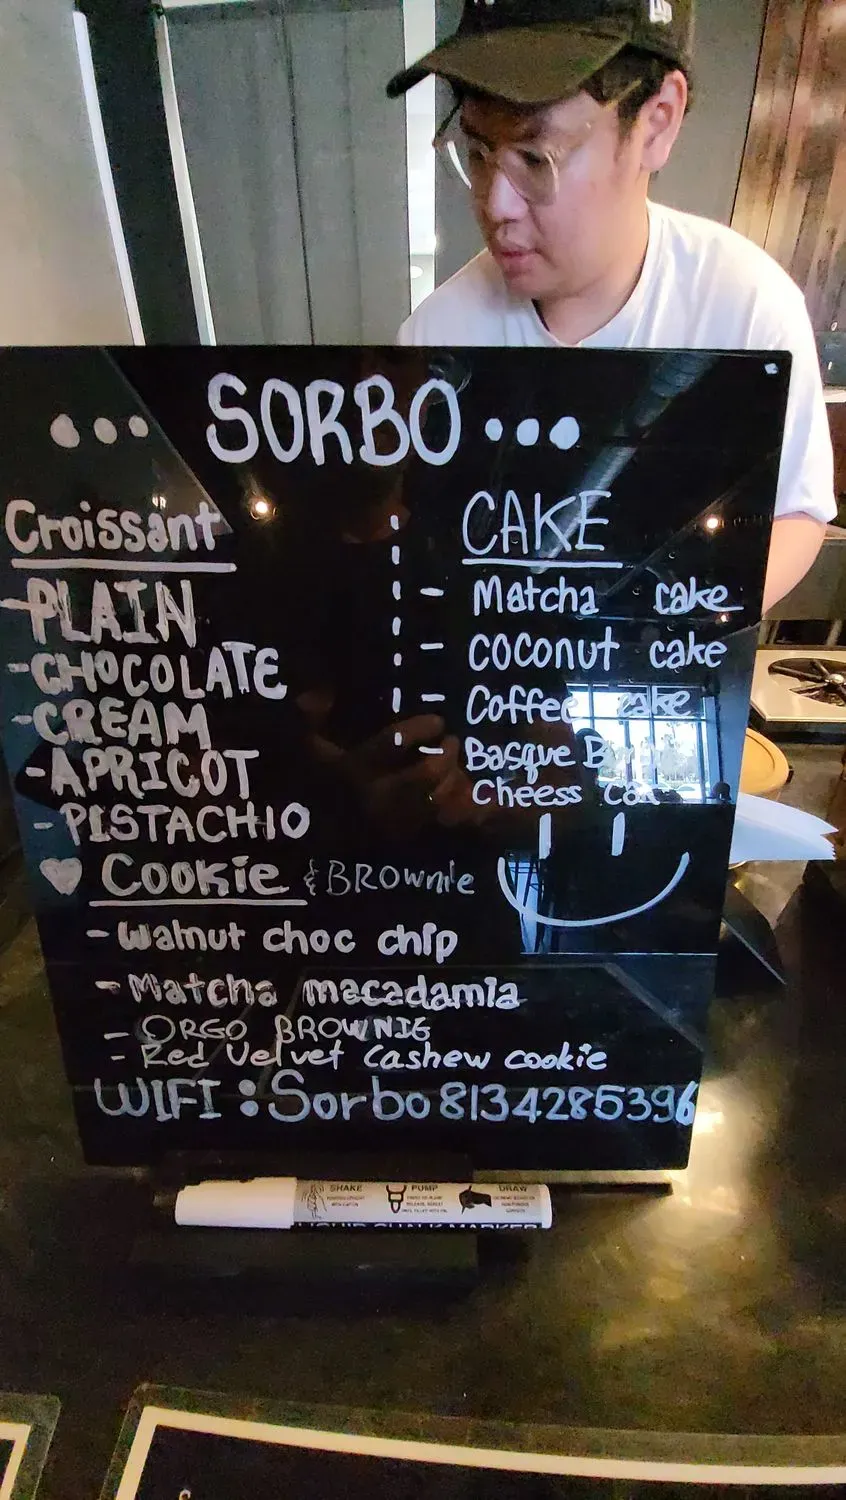 ... SORBO ...
Croissant
- PLAIN
- CHOCOLATE
- CREAM
- APRICOT
- PISTACHIO
CAKE
- Matcha cake
- COCONUT cake
- Coffee cake
- Basque
Cheess
♥ Cookie & BROWNIE
- Walnut choc chip
- Matcha macadamia
- ORGO BROWNIE
- Red Velvet Cashew cookie
WIFI : Sorbo 8134285396
SHAKE PUMP DRAW
LIQUID CHALK MARKER